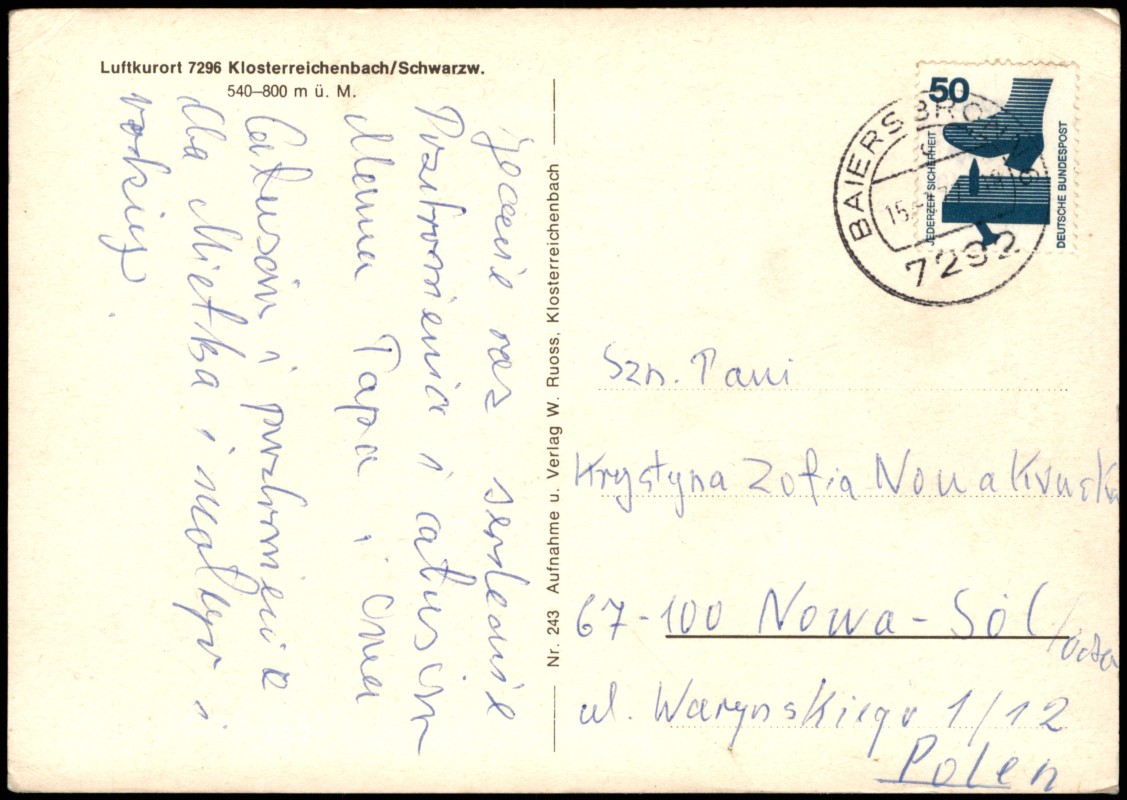 Luftkurort 7296 Klosterreichenbach/Schwarzw.
540–800 m ü. M.
Jeszcze raz serdecnie
Pozdrowienia i całusów
Mama Tapa i Oma
Całusów i pozdrowienia
dla Mietka i małego i
Nr. 243 Aufnahme u. Verlag W. Ruoss, Klosterreichenbach
50
JEDERZEIT SICHERHEIT
DEUTSCHE BUNDESPOST
BAIERSBRONN
15.
7292
Szn. Pani
Krystyna Zofia Nowa
67-100 Nowa-Sól
ul. Warynskiego 1/12
Polen